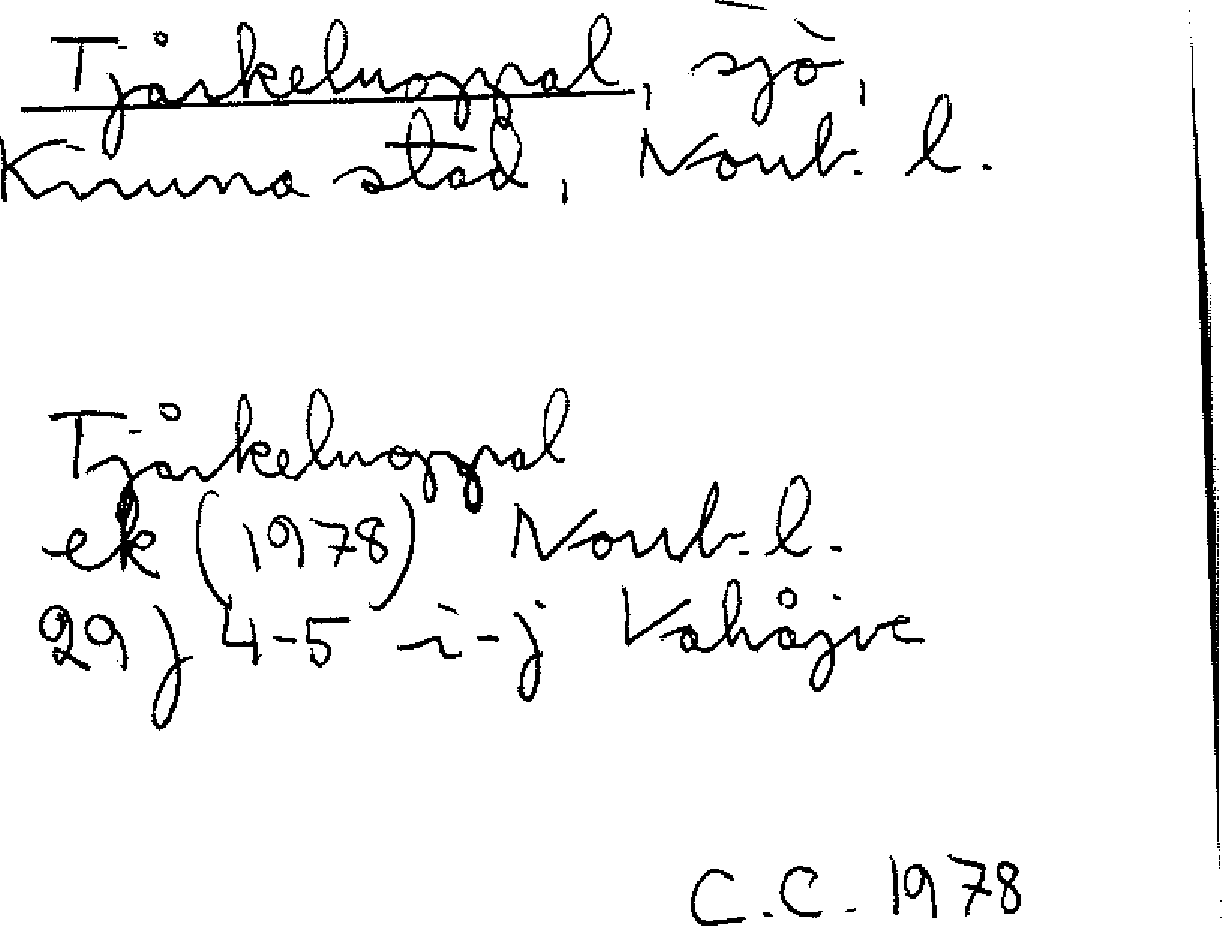 Tjårkeluoppal, sjö,
Kiruna stad, Norrb. l.
Tjårkeluoppal
ek (1978) Norrb. l.
29 J 4-5 i-j Vahåjve
C.C. 1978